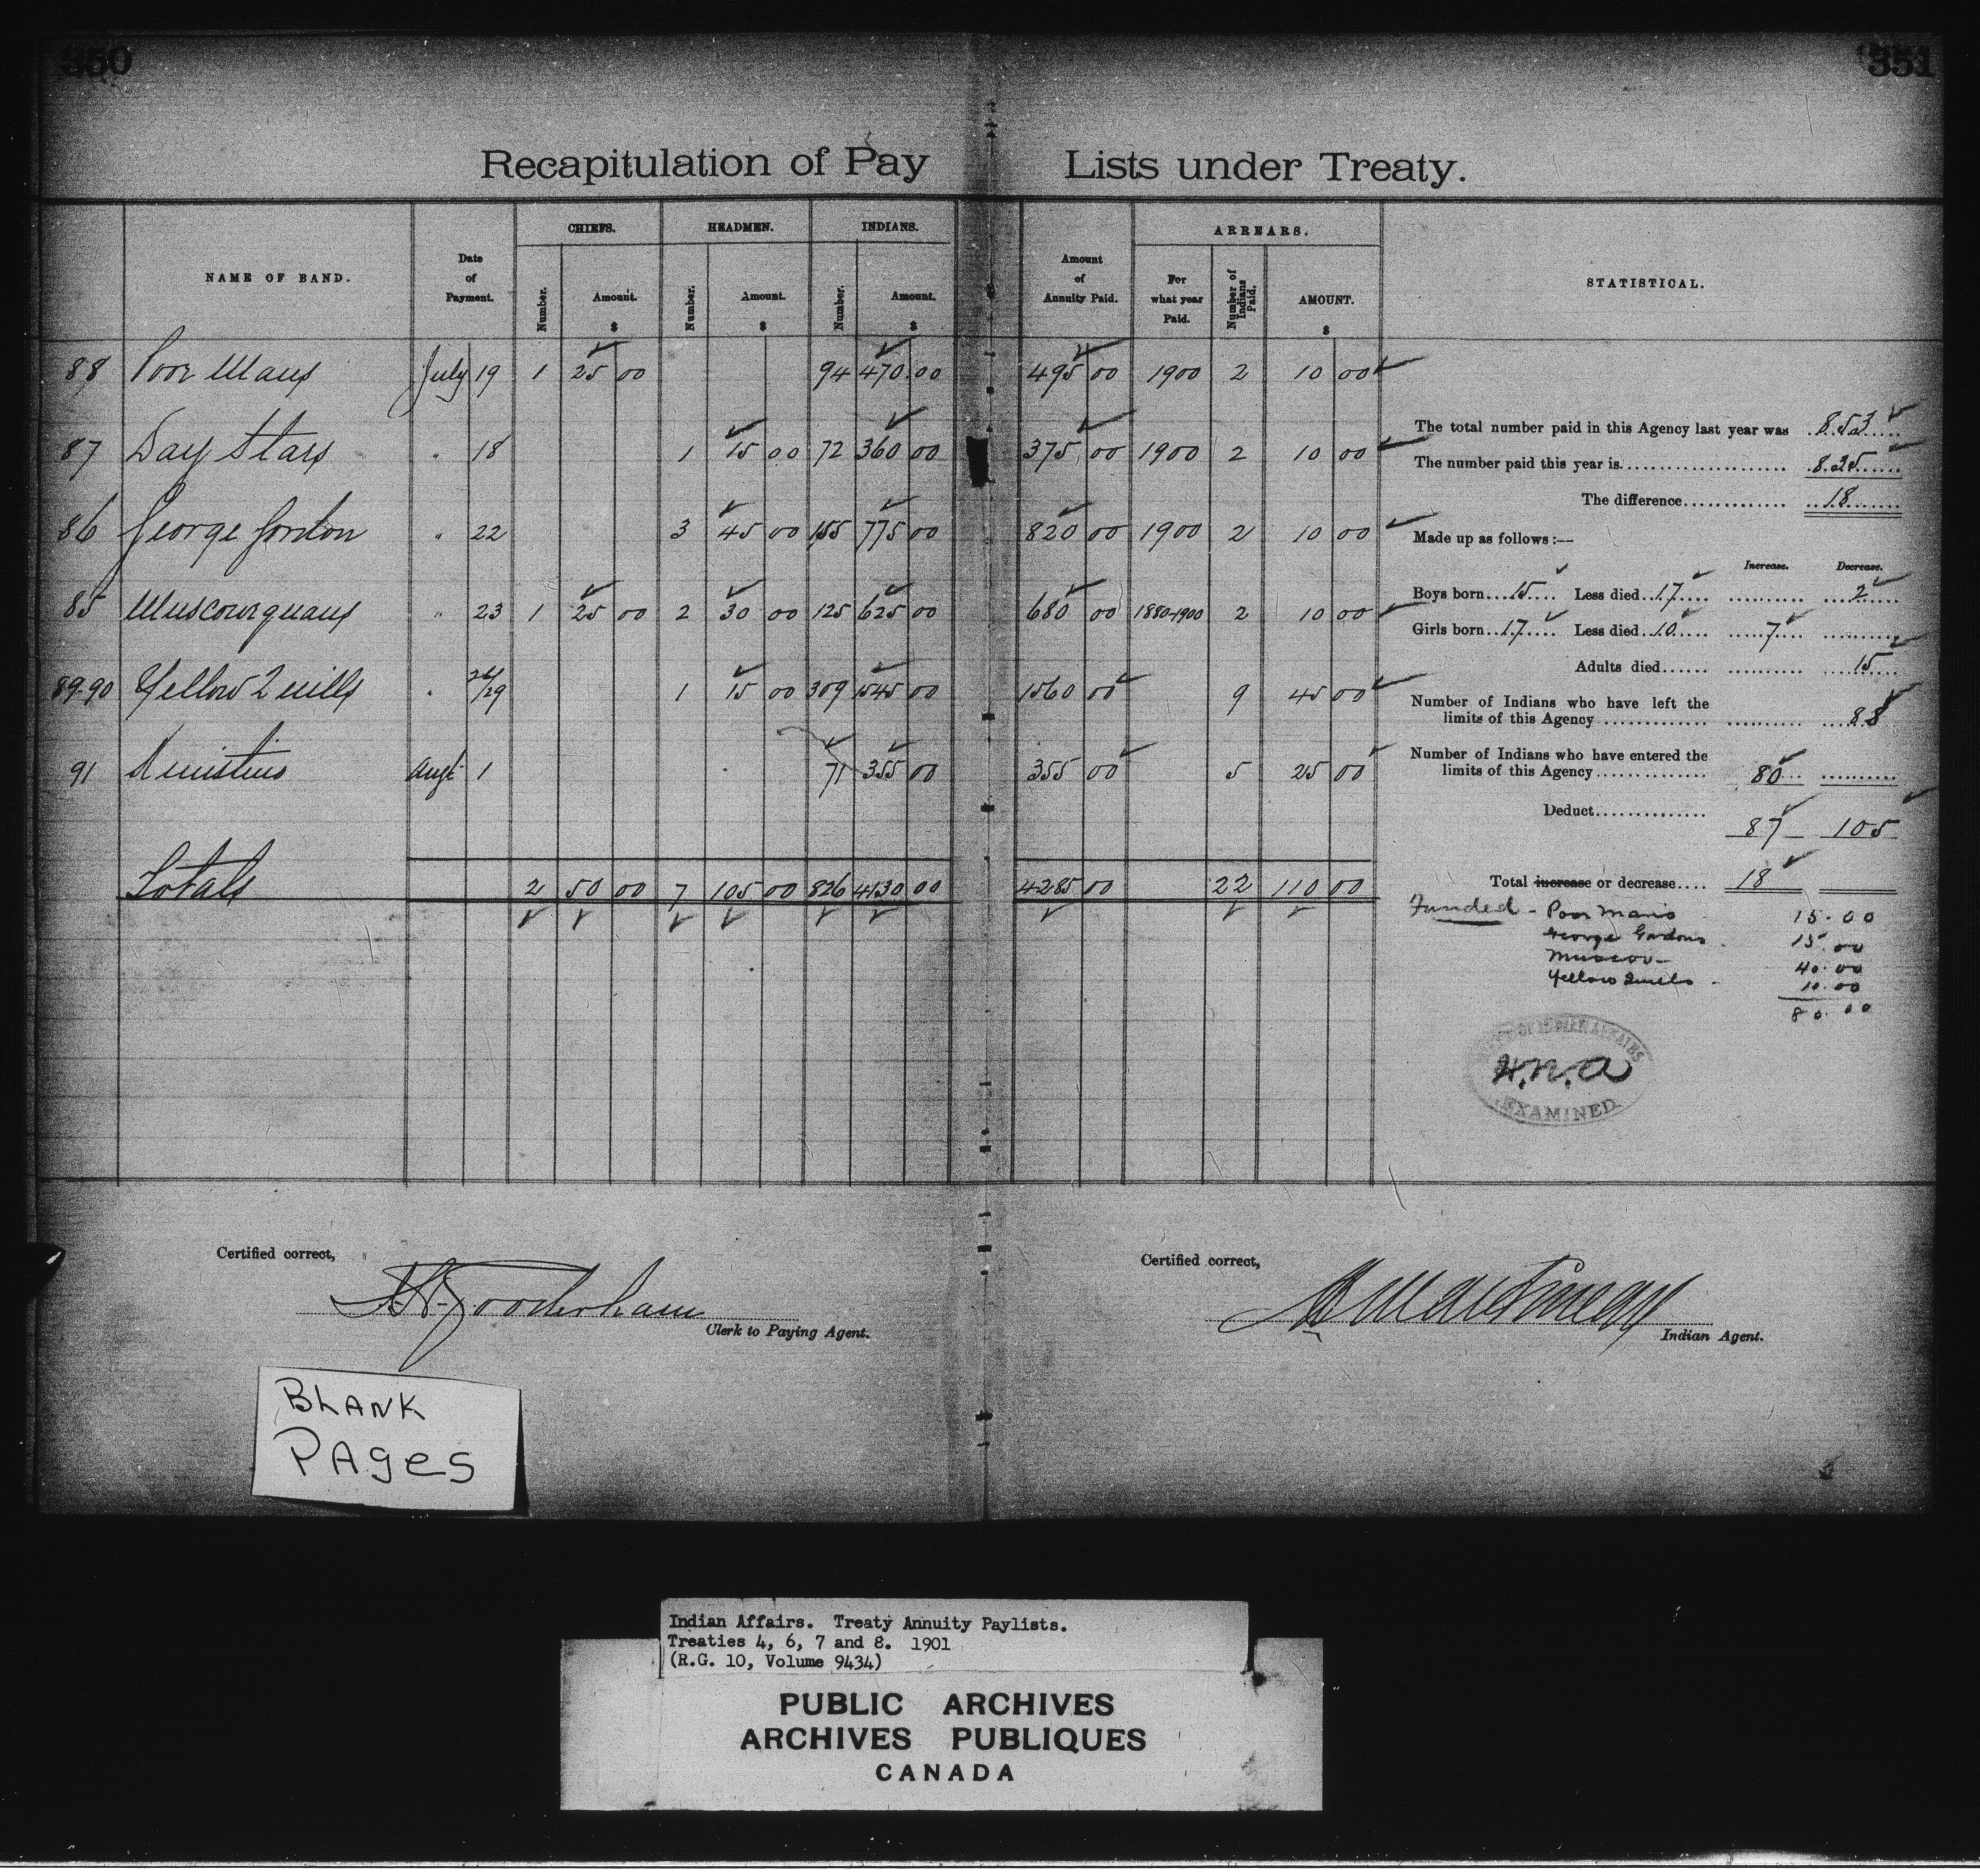 350
351
Recapitulation of Pay Lists under Treaty.
NAME OF BAND.
Date of Payment.
CHIEFS.
Number.
Amount. $
HEADMEN.
Number.
Amount. $
INDIANS.
Number.
Amount. $
Amount of Annuity Paid.
ARREARS.
For what year Paid.
Number of Indians Paid.
AMOUNT. $
STATISTICAL.
88 Poor Mans July 19 1 25 00 94 470 00 495 00 1900 2 10 00
87 Day Stars " 18 1 15 00 72 360 00 375 00 1900 2 10 00
86 George Gordon " 22 3 45 00 155 775 00 820 00 1900 2 10 00
85 Muscowequans " 23 1 25 00 2 30 00 125 625 00 680 00 1880-1900 2 10 00
89-90 Yellow Quills " 26/29 1 15 00 309 1545 00 1560 00 9 45 00
91 Augt 1 71 355 00 355 00 5 25 00
Totals 2 50 00 7 105 00 826 4130 00 4285 00 22 110 00
The total number paid in this Agency last year was 853
The number paid this year is 835
The difference 18
Made up as follows:—
Increase. Decrease.
Boys born 15 Less died 17 2
Girls born 17 Less died 10 7
Adults died 15
Number of Indians who have left the
limits of this Agency 88
Number of Indians who have entered the
limits of this Agency 80
Deduct 87 105
Total increase or decrease 18
Funded - Poor Mans 15.00
George Gordons 15.00
Muscow- 40.00
Yellow Quills 10.00
80.00
OF INDIAN AFFAIRS
H.N.A
EXAMINED.
Certified correct,
Gooderham
Clerk to Paying Agent.
Certified correct,
Indian Agent.
BLANK
PAges
Indian Affairs. Treaty Annuity Paylists.
Treaties 4, 6, 7 and 8. 1901
(R.G. 10, Volume 9434)
PUBLIC ARCHIVES
ARCHIVES PUBLIQUES
CANADA